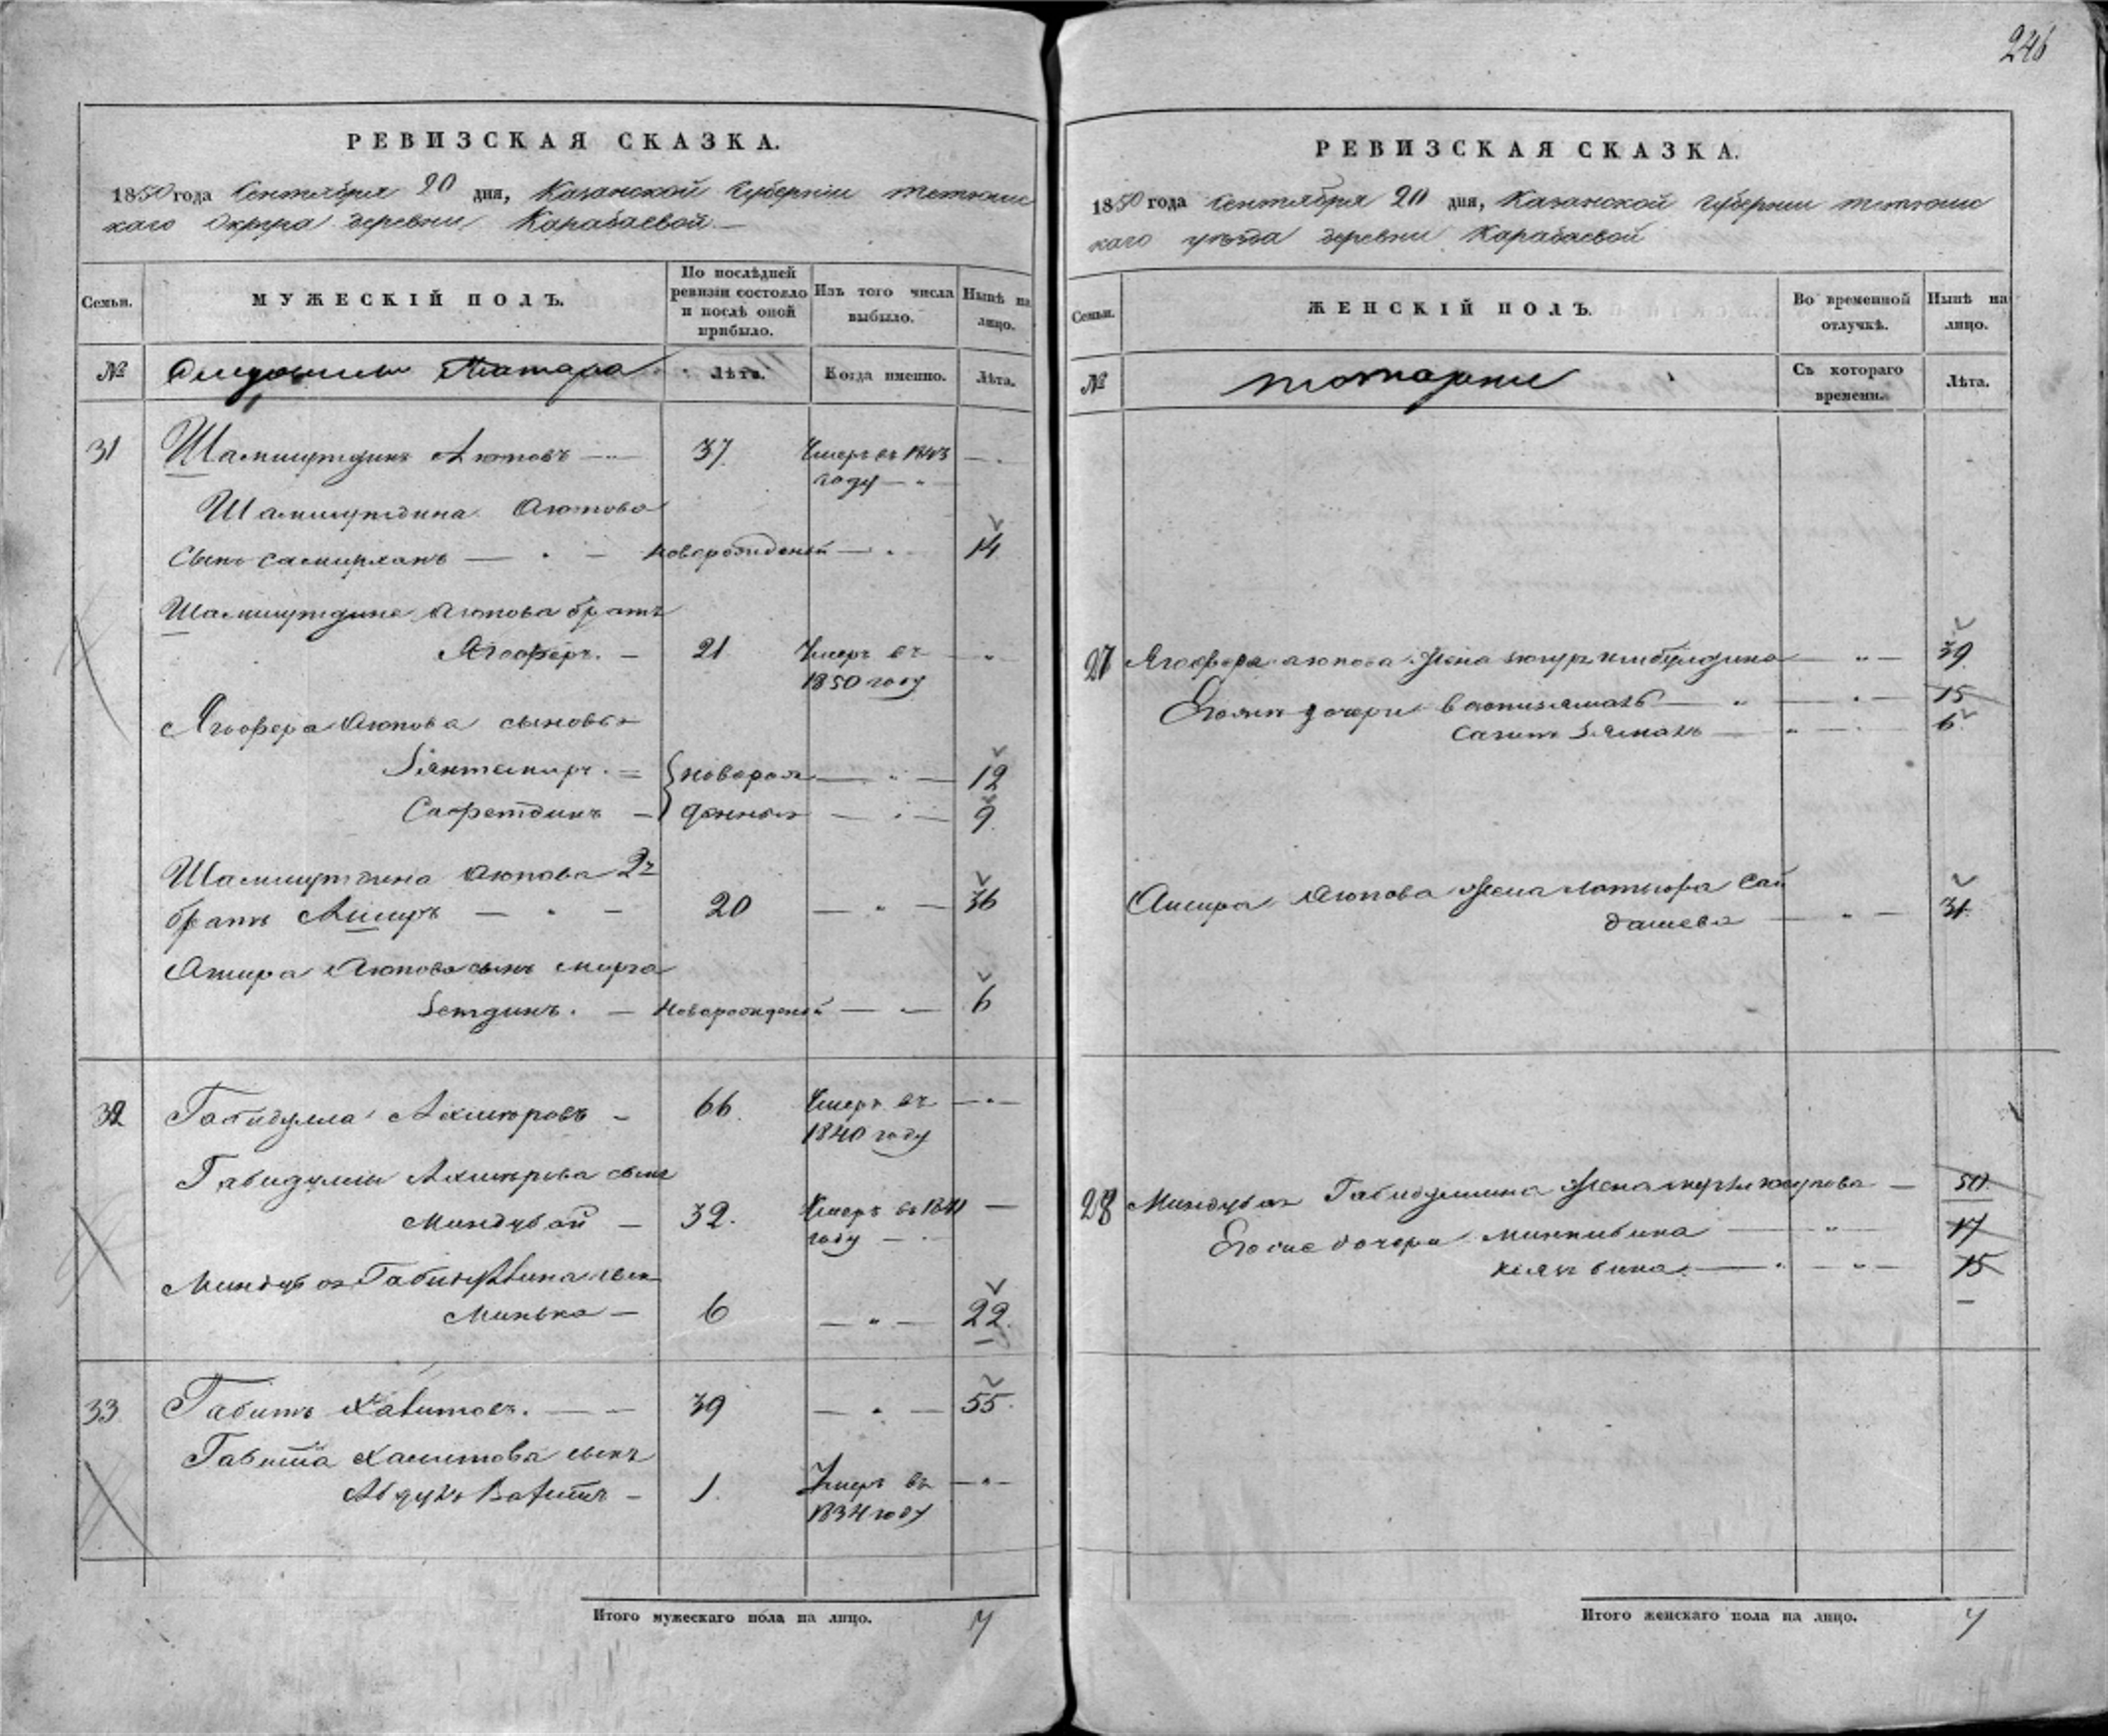 246
РЕВИЗСКАЯ СКАЗКА.
1850 года Сентября 20 дня, Казанской Губернии Тетюшс
каго Округа деревни Карабаевой
Семьи.
МУЖЕСКІЙ ПОЛЪ.
По послѣдней ревизіи состояло и послѣ оной прибыло.
Изъ того числа выбыло.
Нынѣ на лицо.
№
Татара
Лѣта.
Когда именно.
Лѣта.
31 Шамшутдинъ Аюповъ 37. Умеръ въ 1843
году
Шамшутдина Аюпова
Сынъ новорожденой 14
Шамшутдина Аюпова братъ
Ягоферъ. 21. Умеръ въ
1850 году
Ягофера Аюпова сыновья
Бянтемиръ. новорож 12
Сафетдинъ денныя 9
Шамшутдина Аюпова 2й
братъ Амиръ 20 36
Амира Аюпова сынъ мирза
бетдинъ. новорожденой 6
32 Габидулла 66. Умеръ въ
1840 году
Габидуллы сынъ
Миндубай 32. Умеръ въ 1841
году
Миндубая сынъ
Минька 6 22.
33 Габитъ Хамитовъ. 39 55.
Габита Хамитова сынъ
Абдулъ Вагитъ 1. Умеръ въ
1834 году
Итого мужескаго пола на лицо. 7
РЕВИЗСКАЯ СКАЗКА.
1850 года Сентября 20 дня, Казанской Губернии Тетюшс
каго уѣзда деревни Карабаевой
Семьи.
ЖЕНСКІЙ ПОЛЪ.
Во временной отлучкѣ.
Нынѣ на лицо.
№
Съ котораго времени.
Лѣта.
27 Ягофера Аюпова жена 39
дочери 15
6
Амира Аюпова жена Латыфа Сай
дашева 31
28 Миндубая Габидуллина жена 50
дочери Миннибика 17
15
Итого женскаго пола на лицо. 4